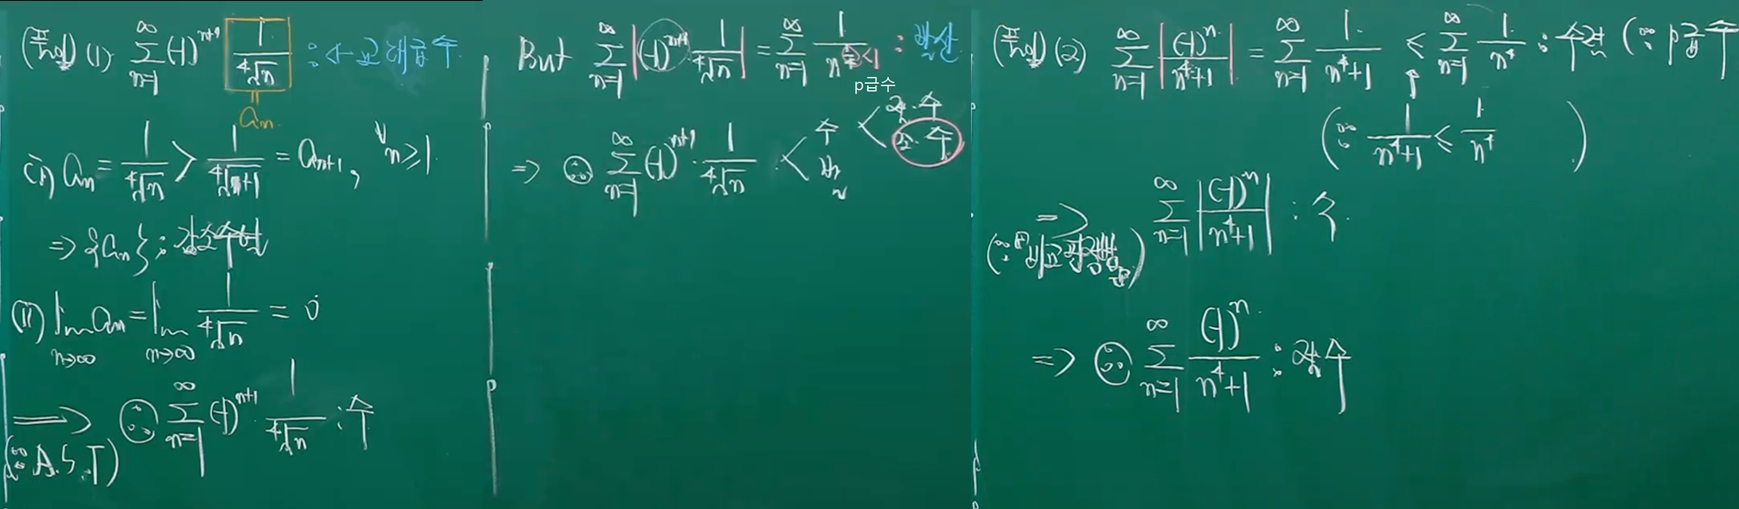 (풀이) (1) ∑_{n=1}^{∞} (-1)^{n+1} 1/∜n : 교대급수
a_n
(i) a_n = 1/∜n > 1/∜(n+1) = a_{n+1}, ∀n≥1
⇒ {a_n} : 감소수열
(ii) lim_{n→∞} a_n = lim_{n→∞} 1/∜n = 0
⟹ (∵ A.S.T) ∴ ∑_{n=1}^{∞} (-1)^{n+1} · 1/∜n : 수
But ∑_{n=1}^{∞} |(-1)^{n+1} 1/∜n| = ∑_{n=1}^{∞} 1/n^{1/4 <1} : 발산
p급수
⇒ ∴ ∑_{n=1}^{∞} (-1)^{n+1} · 1/∜n < 수 < 절·수
조·수
발
(풀이) (2) ∑_{n=1}^{∞} |(-1)^n/(n^4+1)| = ∑_{n=1}^{∞} 1/(n^4+1) ≤ ∑_{n=1}^{∞} 1/n^4 : 수렴 (∵ p급수)
(∵ 1/(n^4+1) ≤ 1/n^4)
⇒ ∑_{n=1}^{∞} |(-1)^n/(n^4+1)| : 수
⇒ ∴ ∑_{n=1}^{∞} (-1)^n/(n^4+1) : 절수